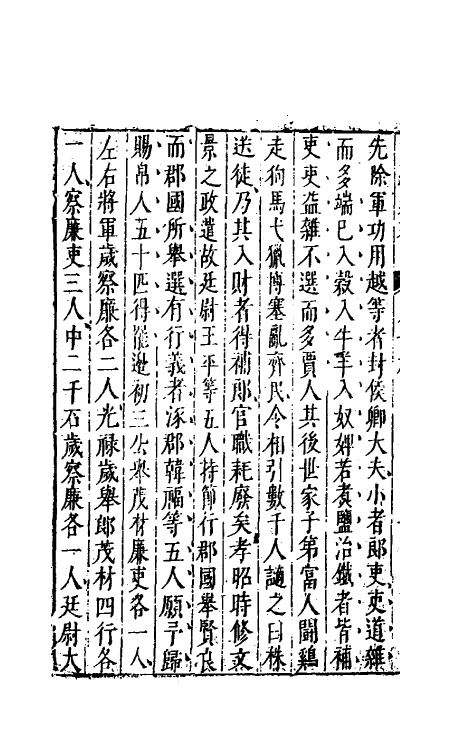 先除軍功用越等者封侯卿大夫小者郎吏吏道雜
而多端巳入穀入牛羊入奴婢若煑鹽冶鐵者皆補
吏吏益雜不選而多賈人其後世家子弟富人鬪鷄
走狗馬弋獵博塞亂齊民令相引數千人謫之曰株
送徒乃其入財者得補郎官職耗廢矣孝昭時修文
景之政遣故廷尉王平等五人持節行郡國舉賢良
而郡國所舉選有行義者涿郡韓福等五人願予歸
賜帛人五十匹得罷遯初三公舉茂材廉吏各一人
左右將軍歲察廉各二人光祿歲舉郎茂材四行各
一人察廉吏三人中二千石歲察廉各一人廷尉大